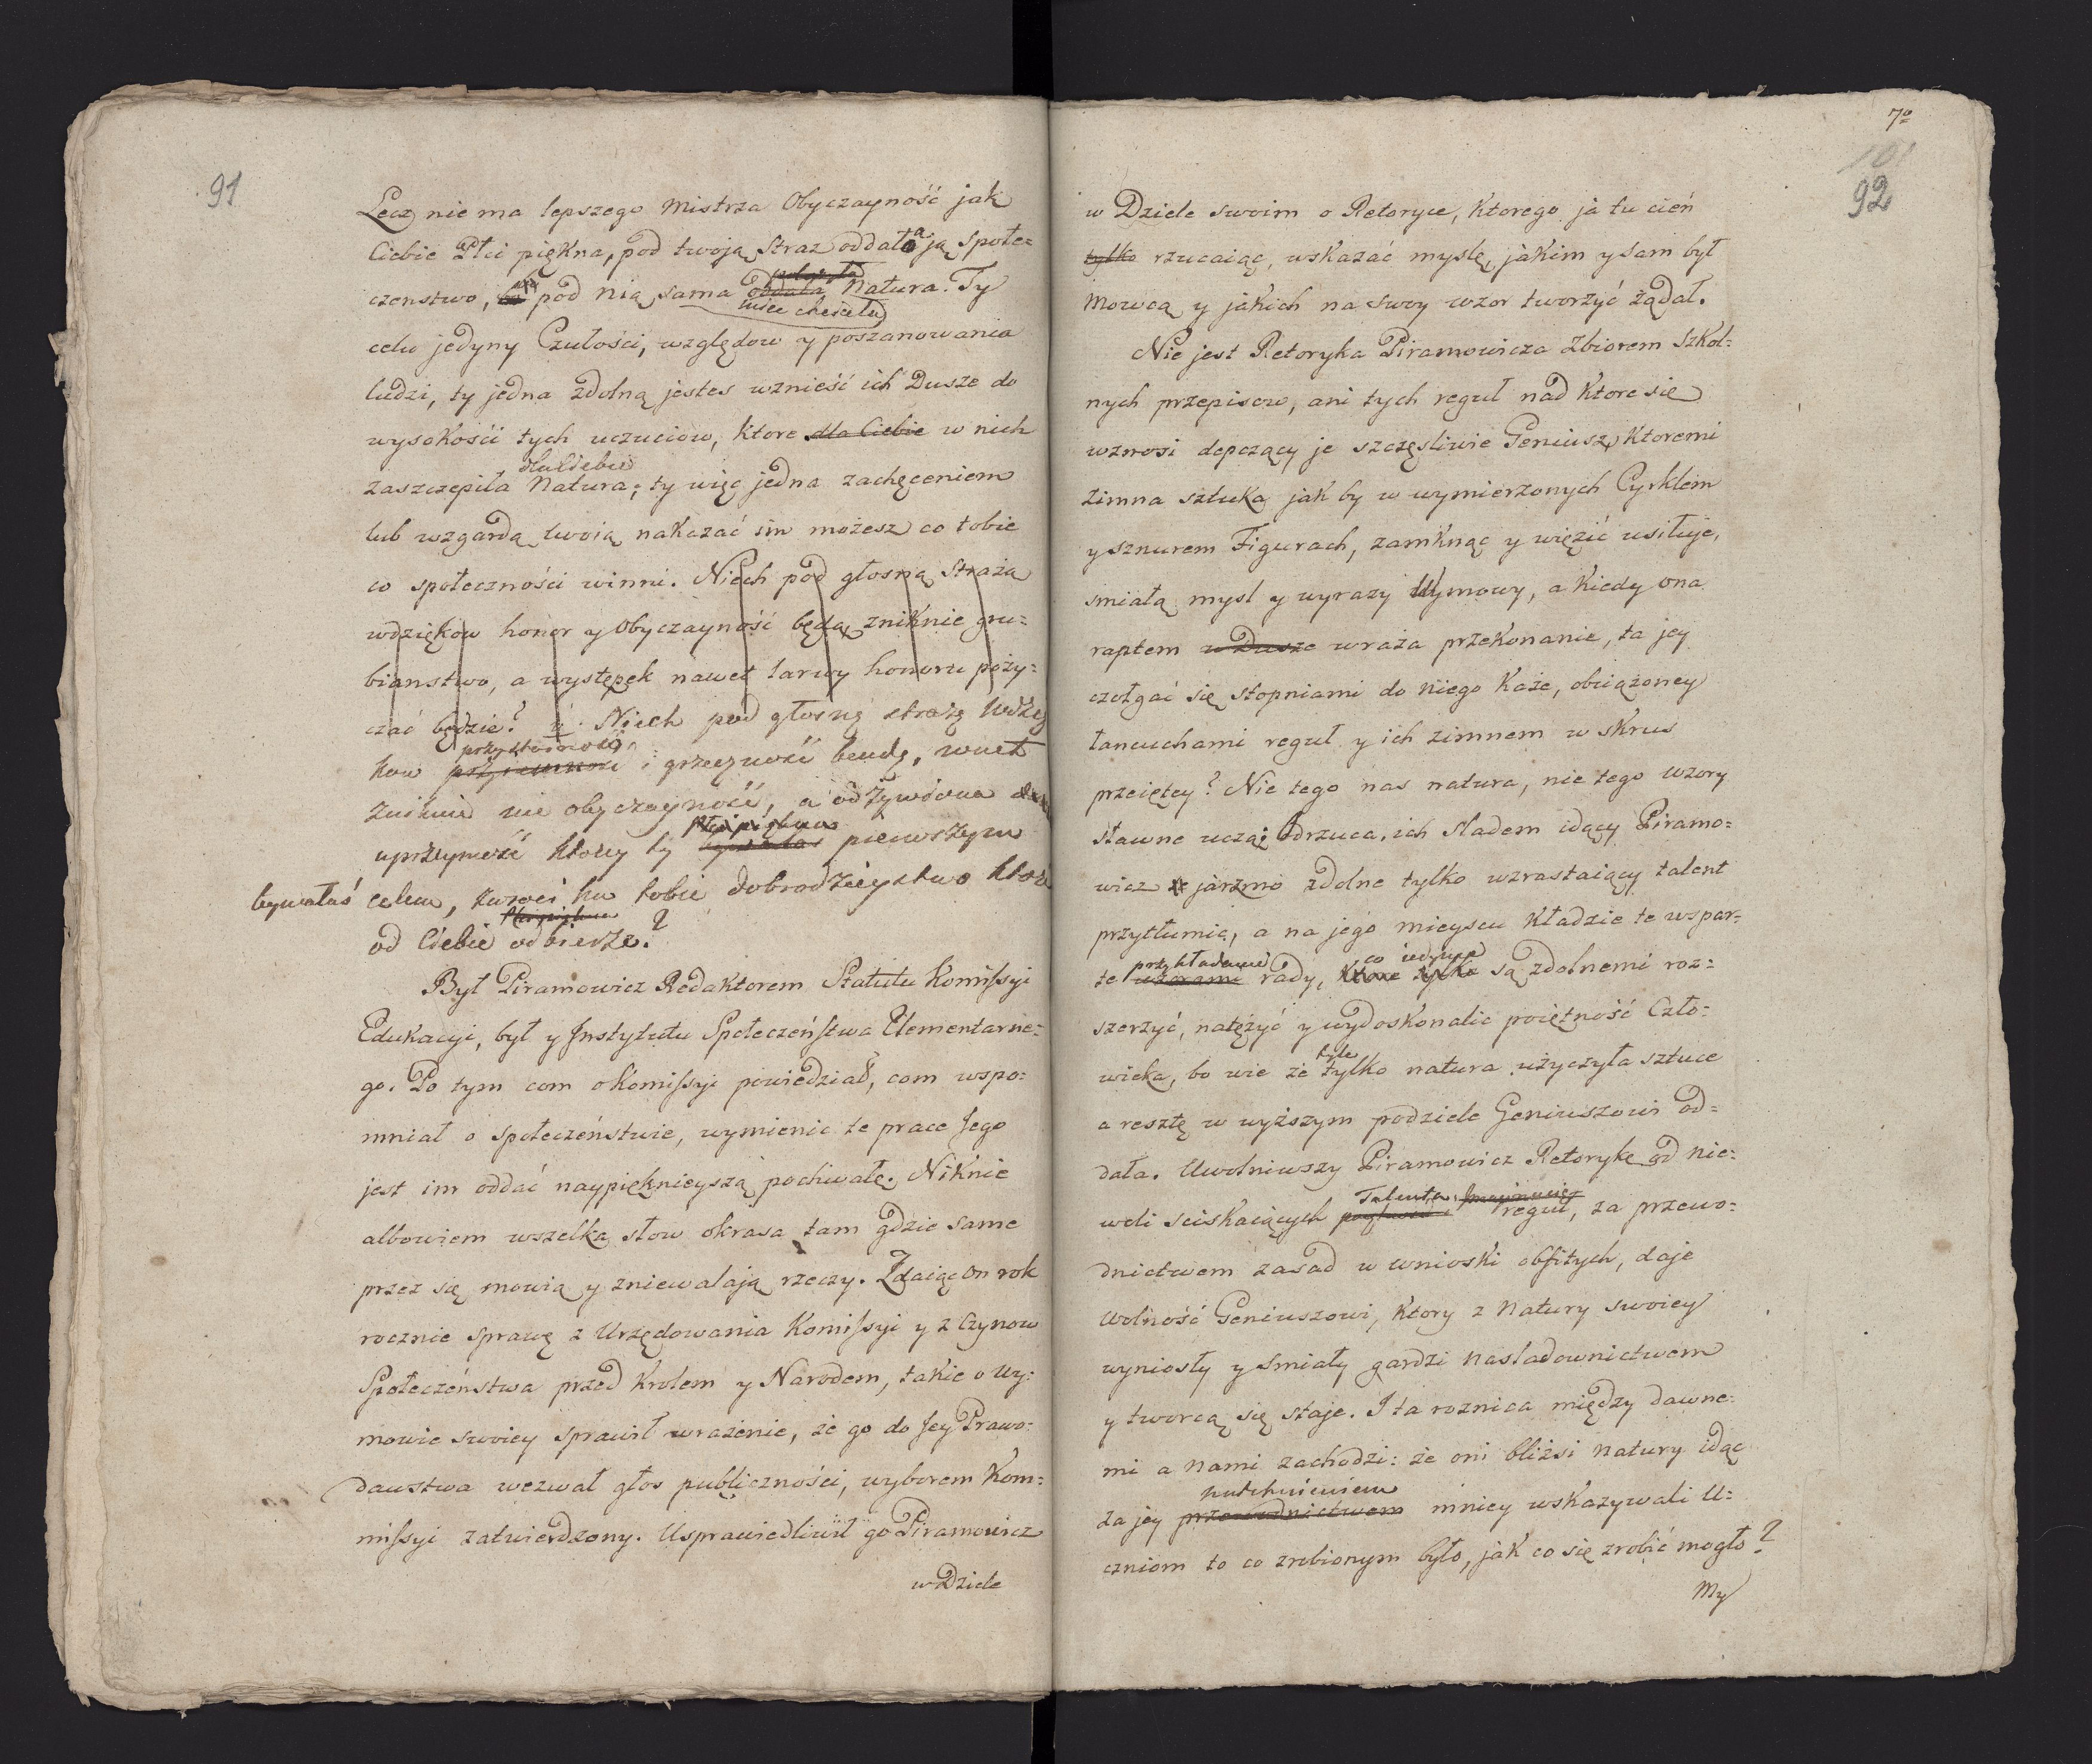 91
Lecz nie ma lepszego Mistrza Obyczayność jak
Ciebie Płci piękna, pod twoją Straz oddała ją społe=
czenstwo, pod nią sama oddała Natura. Ty
miec chciała
celu jedyny Czułości, względow y poszanowania
ludzi, ty jedna zdolną jestes wznieść ich Dusze do
wysokości tych uczuciow, ktore dla Ciebie w nich
dla Ciebie
zaszczepiła Natura; ty więc jedna zachęceniem
lub wzgardą twoią nakazać im możesz co tobie
co społeczności winni. Niech pod głosną Strażą
wdziękow honor y Obyczayność będą, zniknie gru=
bianstwo, a występek nawet larwy honoru poży=
czać będzie? Niech pod głosną strażą wdzię
kow przystoiność i grzeczność będą, wnet
zniknie nie obyczayność, a odżywiona
płci piękna
uprzeymość ktorey ty pierwszym
bywałaś celem, zwroci ku tobie dobrodzieystwo ktore
Płci piękna
od Ciebie odbierze?
Był Piramowicz Redaktorem Statutu Komissyi
Edukacyi, był y Instytutu Społeczeństwa Elementarne=
go. Po tym com o Komissyi powiedział, com wspo=
mniał o społeczeństwie, wymienic te prace Jego
jest im oddać naypięknieyszą pochwałę. Niknie
albowiem wszelka słow okrasa tam gdzie same
przez się mowią y zniewalają rzeczy. Zdaiąc On rok
rocznie sprawę z Urzędowania Komissyi y z Czynow
Społeczeństwa przed Krolem y Narodem, takie o Wy=
mowie swoiey sprawił wrażenie, że go do Jey Prawo=
dawstwa wezwał głos publiczności, wyborem Kom=
missyi zatwierdzony. Usprawiedliwił go Piramowicz
w Dziele
7º
101
92
w Dziele swoim o Retoryce, ktorego ja tu cień
tylko rzucaiąc, wskazać myslę, jakim y sam był
Mowcą y jakich na swoy wzor tworzyć żądał.
Nie jest Retoryka Piramowicza Zbiorem Szkol=
nych przepisow, ani tych reguł nad ktore się
wznosi depczący je szczęsliwie Geniusz, ktoremi
zimna sztuka jak by w wymierzonych Cyrklem
y sznurem Figurach, zamknąc y więzić usiłuje,
smiałą mysl y wyrazy Wymowy, a kiedy ona
raptem w Dusze wraża przekonanie, ta jey
czołgać się stopniami do niego każe, obciążoney
łancuchami reguł y ich zimnem w skrus
przeiętey? Nie tego nas natura, nie tego wzory
sławne uczą; Odrzuca, ich sladem idący Piramo=
wicz jarzmo zdolne tylko wzrastaiący talent
przytłumić, a na jego mieyscu kładzie te wspar=
przykładami co iedynie
te wzorami rady, ktore tylko są zdolnemi roz=
szerzyć, natężyć y wydoskonalic poiętność Czło=
tyle
wieka, bo wie że tylko natura użyczyła sztuce
a resztę w wyższym podziele Geniuszowi od=
dała. Uwolniwszy Piramowicz Retorykę od nie=
Talenta
woli sciskaiących reguł, za przewo=
dnictwem zasad w wnioski obfitych, daje
Wolność Geniuszowi, ktory z Natury swoiey
wyniosły y smiały gardzi nasladownictwem
y tworcą się staje. I ta roznica między dawne=
mi a nami zachodzi: że oni bliżsi natury idąc
natchnieniem
za jey przewodnictwem mniey wskazywali U=
czniom to co zrobionym było, jak co się zrobić mogło?
My